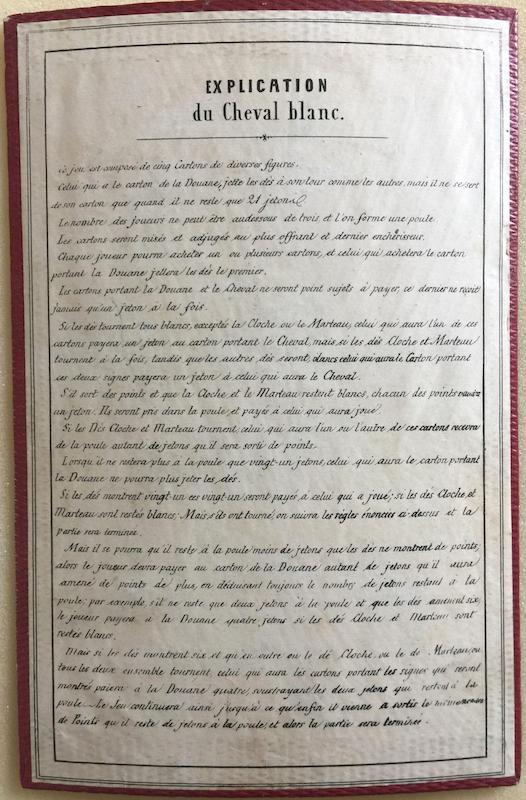 EXPLICATION
du Cheval blanc.
Ce jeu est composé de cinq Cartons de diverses figures.
Celui qui a le carton de la Douane, jette les dés à son tour comme les autres, mais il ne se sert
de son carton que quand il ne reste que 21 jetons.
Le nombre des joueurs ne peut être audessous de trois et l'on forme une poule.
Les cartons seront misés et adjugés au plus offrant et dernier enchérisseur.
Chaque joueur pourra acheter un ou plusieurs cartons, et celui qui achetera le carton
portant la Douane jettera les dés le premier.
Les cartons portant la Douane et le Cheval ne seront point sujets à payer, ce dernier ne reçoit
jamais qu'un jeton à la fois.
Si les dés tournent tous blancs, exceptés la Cloche ou le Marteau, celui qui aura l'un de ces
cartons payera un jeton au carton portant le Cheval, mais si les dés Cloche et Marteau
tournent à la fois, tandis que les autres dés seront blancs celui qui aura le Carton portant
ces deux signes payera un jeton à celui qui aura le Cheval.
S'il sort des points et que la Cloche et le Marteau restent blancs, chacun des points vaudra
un jeton. Ils seront pris dans la poule et payés à celui qui aura joué.
Si les Dés Cloche et Marteau tournent, celui qui aura l'un ou l'autre de ces cartons recevra
de la poule autant de jetons qu'il sera sorti de points.
Lorsqu'il ne restera plus à la poule que vingt-un jetons, celui qui aura le carton portant
la Douane ne pourra plus jeter les dés.
Si les dés montrent vingt-un ces vingt-un seront payés à celui qui a joué; si les dés Cloche et
Marteau sont restés blancs; Mais s'ils ont tourné, on suivra les règles énoncées ci-dessus et la
partie sera terminée.
Mais il se pourra qu'il reste à la poule moins de jetons que les dés ne montrent de points,
alors le joueur devra payer au carton de la Douane autant de jetons qu'il aura
amené de points de plus, en déduisant toujours le nombre de jetons restant à la
poule: par exemple, s'il ne reste que deux jetons à la poule et que les dés amenent six,
le joueur payera à la Douane quatre jetons si les dés Cloche et Marteau sont
restés blancs.
Mais si les dés montrent six et qu'en outre ou le dé Cloche ou le dé Marteau, ou
tous les deux ensemble tournent, celui qui aura les cartons portant les signes qui seront
montrés paiera à la Douane quatre, soustrayant les deux jetons qui restent à la
poule. Le Jeu continuera ainsi jusqu'à ce qu'enfin il vienne à sortir le même nombre
de Points qu'il reste de jetons à la poule, et alors la partie sera terminée.